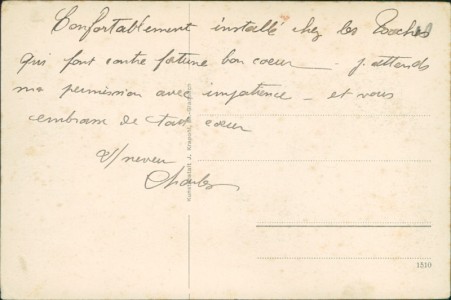 Confortablement installé chez les Boches
qui font contre fortune bon coeur - j'attends
ma permission avec impatience - et vous
embrasse de tout coeur
V/neveu
Charles
1510